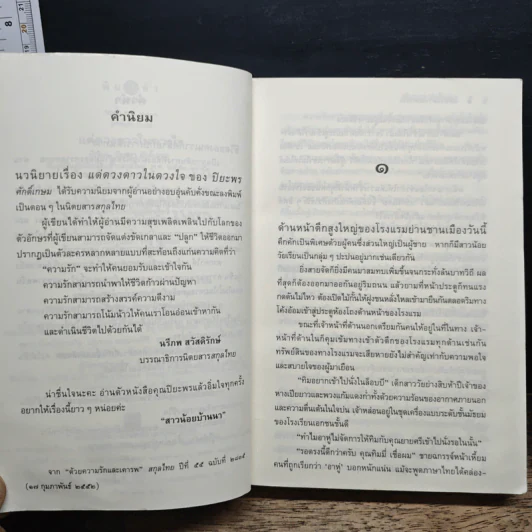 คำนิยม
นวนิยายเรื่อง แด่ดวงดาวในดวงใจ ของ ปิยะพร
ศักดิ์เกษม ได้รับความนิยมจากผู้อ่านอย่างอบอุ่นคับคั่งขณะลงพิมพ์
เป็นตอน ๆ ในนิตยสารสกุลไทย
ผู้เขียนได้ทำให้ผู้อ่านมีความสุขเพลิดเพลินไปกับโลกของ
ตัวอักษรที่ผู้เขียนสามารถจัดแต่งขัดเกลาและ “ปลูก” ให้ชีวิตออกมา
ปรากฏเป็นตัวละครหลากหลายแบบที่สะท้อนถึงแก่นความคิดที่ว่า
“ความรัก” จะทำให้คนยอมรับและเข้าใจกัน
ความรักสามารถนำพาให้ชีวิตก้าวผ่านปัญหา
ความรักสามารถสร้างสรรค์ความดีงาม
ความรักสามารถโน้มน้าวให้คนเราโอนอ่อนเข้าหากัน
และดำเนินชีวิตไปด้วยกันได้
นรีภพ สวัสดิรักษ์
บรรณาธิการนิตยสารสกุลไทย
น่าชื่นใจนะคะ อ่านตัวหนังสือคุณปิยะพรแล้วอิ่มใจทุกครั้ง
อยากให้เรื่องนี้ยาว ๆ หน่อยค่ะ
“สาวน้อยบ้านนา”
จาก “ด้วยความรักและเคารพ” สกุลไทย ปีที่ ๕๕ ฉบับที่
(๑๗ กุมภาพันธ์ ๒๕๕๒)
๑
ด้านหน้าตึกสูงใหญ่ของโรงแรมย่านชานเมืองวันนี้
คึกคักเป็นพิเศษด้วยผู้คนซึ่งส่วนใหญ่เป็นผู้ชาย หากก็มีสาวน้อย
วัยเรียนเป็นกลุ่ม ๆ ปะปนอยู่มากเช่นเดียวกัน
ยิ่งสายจัดก็ยิ่งมีคนมาสมทบเพิ่มขึ้นจนกระทั่งล้นบาทวิถี ผล
ที่สุดก็ต้องออกมาออกันอยู่ริมถนน แล้วยามที่หน้าประตูก็ทนแรง
กดดันไม่ไหว ต้องเปิดไม้กั้นให้ฝูงชนหลั่งไหลเข้ามายืนกันตลอดริมทาง
โค้งอ้อมเข้าสู่ประตูห้องโถงด้านหน้าของโรงแรม
ขณะที่เจ้าหน้าที่ด้านนอกเตรียมกันคนให้อยู่ในที่ในทาง เจ้า-
หน้าที่ด้านในก็คุมเข้มทางเข้าตัวตึกของโรงแรมทุกด้านเช่นกัน
ทรัพย์สินของทางโรงแรมจะเสียหายยังไม่สำคัญเท่ากับความพอใจ
และสบายใจของผู้มาเยือน
“ทิมอยากเข้าไปนั่งในล็อบบี้” เด็กสาววัยย่างสิบห้าปีเจ้าของ
หางเปียยาวและพวงแก้มแดงก่ำทั้งด้วยความร้อนของอากาศภายนอก
และความตื่นเต้นในใจบ่น เจ้าหล่อนอยู่ในชุดเครื่องแบบระดับชั้นมัธยม
ของโรงเรียนเอกชนชื่อดี
“ทำไมอาฟูไม่จัดการให้ทิมกับคุณยายศรีเข้าไปนั่งรอในนั้น”
“รอตรงนี้ดีกว่าครับ คุณทิมมี่ เชื่อผม” ชายฉกรรจ์หน้าเหี้ยม
คนที่ถูกเรียกว่า ‘อาฟู’ บอกหนักแน่น แม้จะพูดภาษาไทยได้คล่อง-